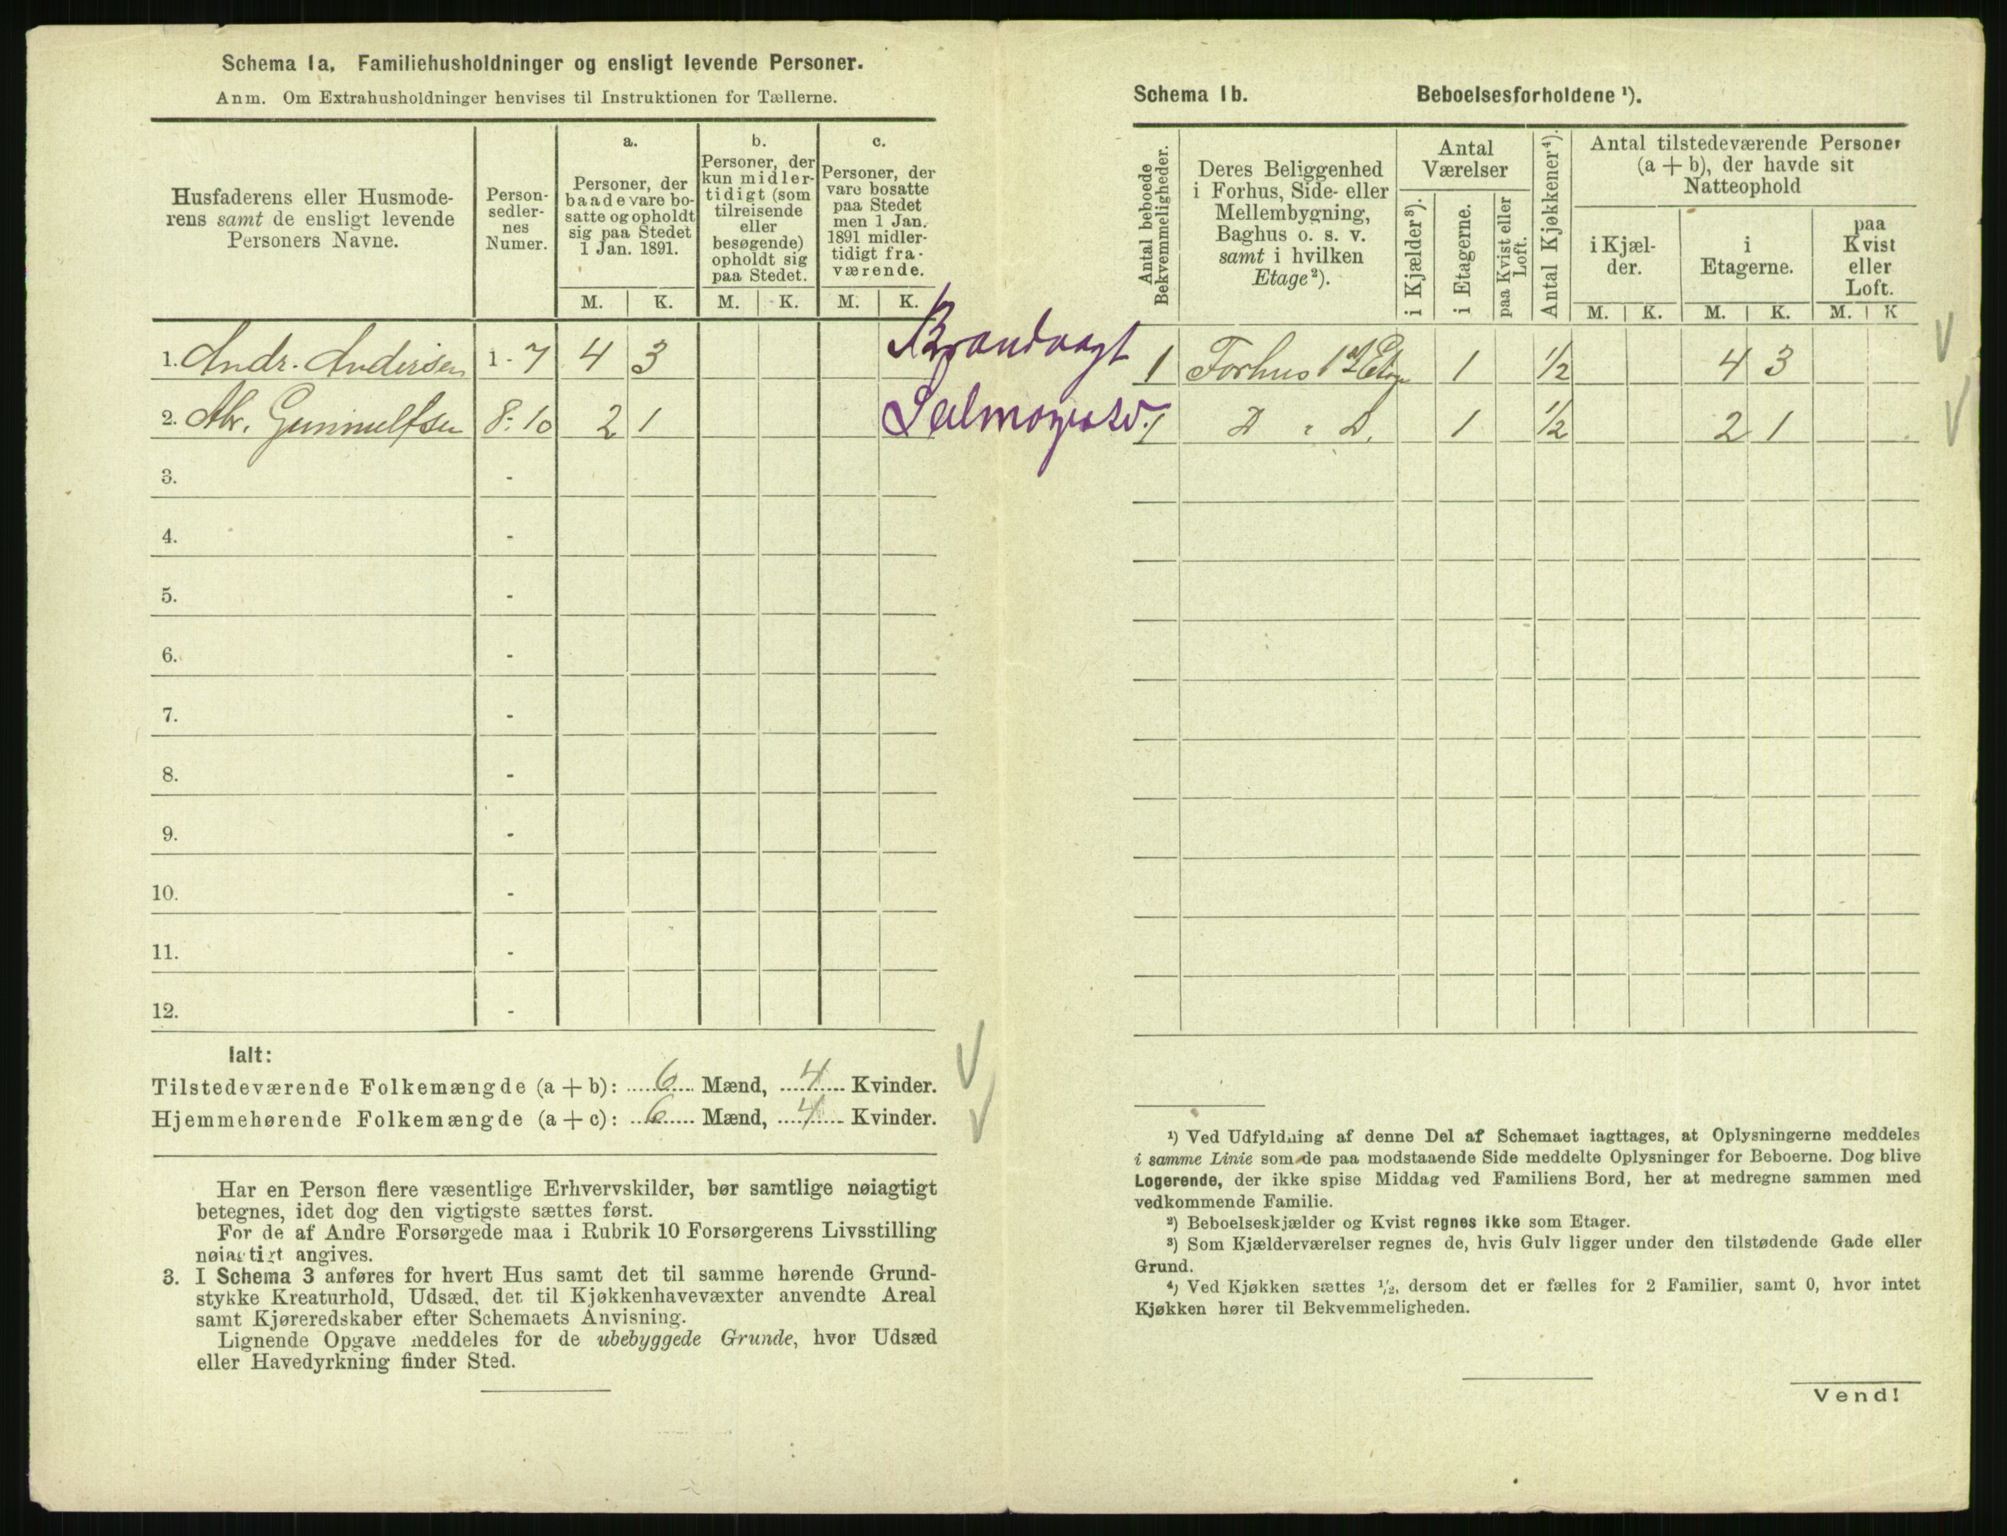 Schema 1a. Familiehusholdninger og ensligt levende Personer.
Anm. Om Extrahusholdninger henvises til Instruktionen for Tællerne.
Husfaderens eller Husmode-
rens samt de ensligt levende
Personers Navne.
Person-
sedler-
nes
Numer.
a.
Personer, der
baade vare bo-
satte og opholdt
sig paa Stedet
1 Jan. 1891.
b.
Personer, der
kun midler-
tidigt (som
tilreisende
eller
besøgende)
opholdt sig
paa Stedet.
c.
Personer, der
vare bosatte
paa Stedet
men 1 Jan.
1891 midler-
tidigt fra-
værende.
M. K. M. K. M. K.
1. Andr. Andersen 1 - 7 4 3 Brandvagt
2. Abr. Gunnulfsen 8 - 10 2 1
3. -
4. -
5. -
6. -
7. -
8. -
9. -
10. -
11. -
12. -
Ialt:
Tilstedeværende Folkemængde (a + b): 6 Mænd, 4 Kvinder.
Hjemmehørende Folkemængde (a + c): 6 Mænd, 4 Kvinder.
Har en Person flere væsentlige Erhvervskilder, bør samtlige nøiagtigt
betegnes, idet dog den vigtigste sættes først.
For de af Andre Forsørgede maa i Rubrik 10 Forsørgerens Livsstilling
nøiagtigt angives.
3. I Schema 3 anføres for hvert Hus samt det til samme hørende Grund-
stykke Kreaturhold, Udsæd, det til Kjøkkenhavevæxter anvendte Areal
samt Kjøreredskaber efter Schemaets Anvisning.
Lignende Opgave meddeles for de ubebyggede Grunde, hvor Udsæd
eller Havedyrkning finder Sted.
Schema 1b. Beboelsesforholdene ¹).
Antal beboede
Bekvemmeligheder.
Deres Beliggenhed
i Forhus, Side- eller
Mellembygning,
Baghus o. s. v.
samt i hvilken
Etage²).
Antal
Værelser
i Kjælder³).
i Etagerne.
paa Kvist eller
Loft.
Antal Kjøkkener⁴).
Antal tilstedeværende Personer
(a + b), der havde sit
Natteophold
i Kjæl-
der.
i
Etagerne.
paa
Kvist
eller
Loft.
M. K. M. K. M. K
1 Forhus 1ste Etage 1 1/2 4 3
1 D. " D. 1 1/2 2 1
¹) Ved Udfyldning af denne Del af Schemaet iagttages, at Oplysningerne meddeles
i samme Linie som de paa modstaaende Side meddelte Oplysninger for Beboerne. Dog blive
Logerende, der ikke spise Middag ved Familiens Bord, her at medregne sammen med
vedkommende Familie.
²) Beboelseskjælder og Kvist regnes ikke som Etager.
³) Som Kjælderværelser regnes de, hvis Gulv ligger under den tilstødende Gade eller
Grund.
⁴) Ved Kjøkken sættes ¹/₂, dersom det er fælles for 2 Familier, samt 0, hvor intet
Kjøkken hører til Bekvemmeligheden.
Vend!